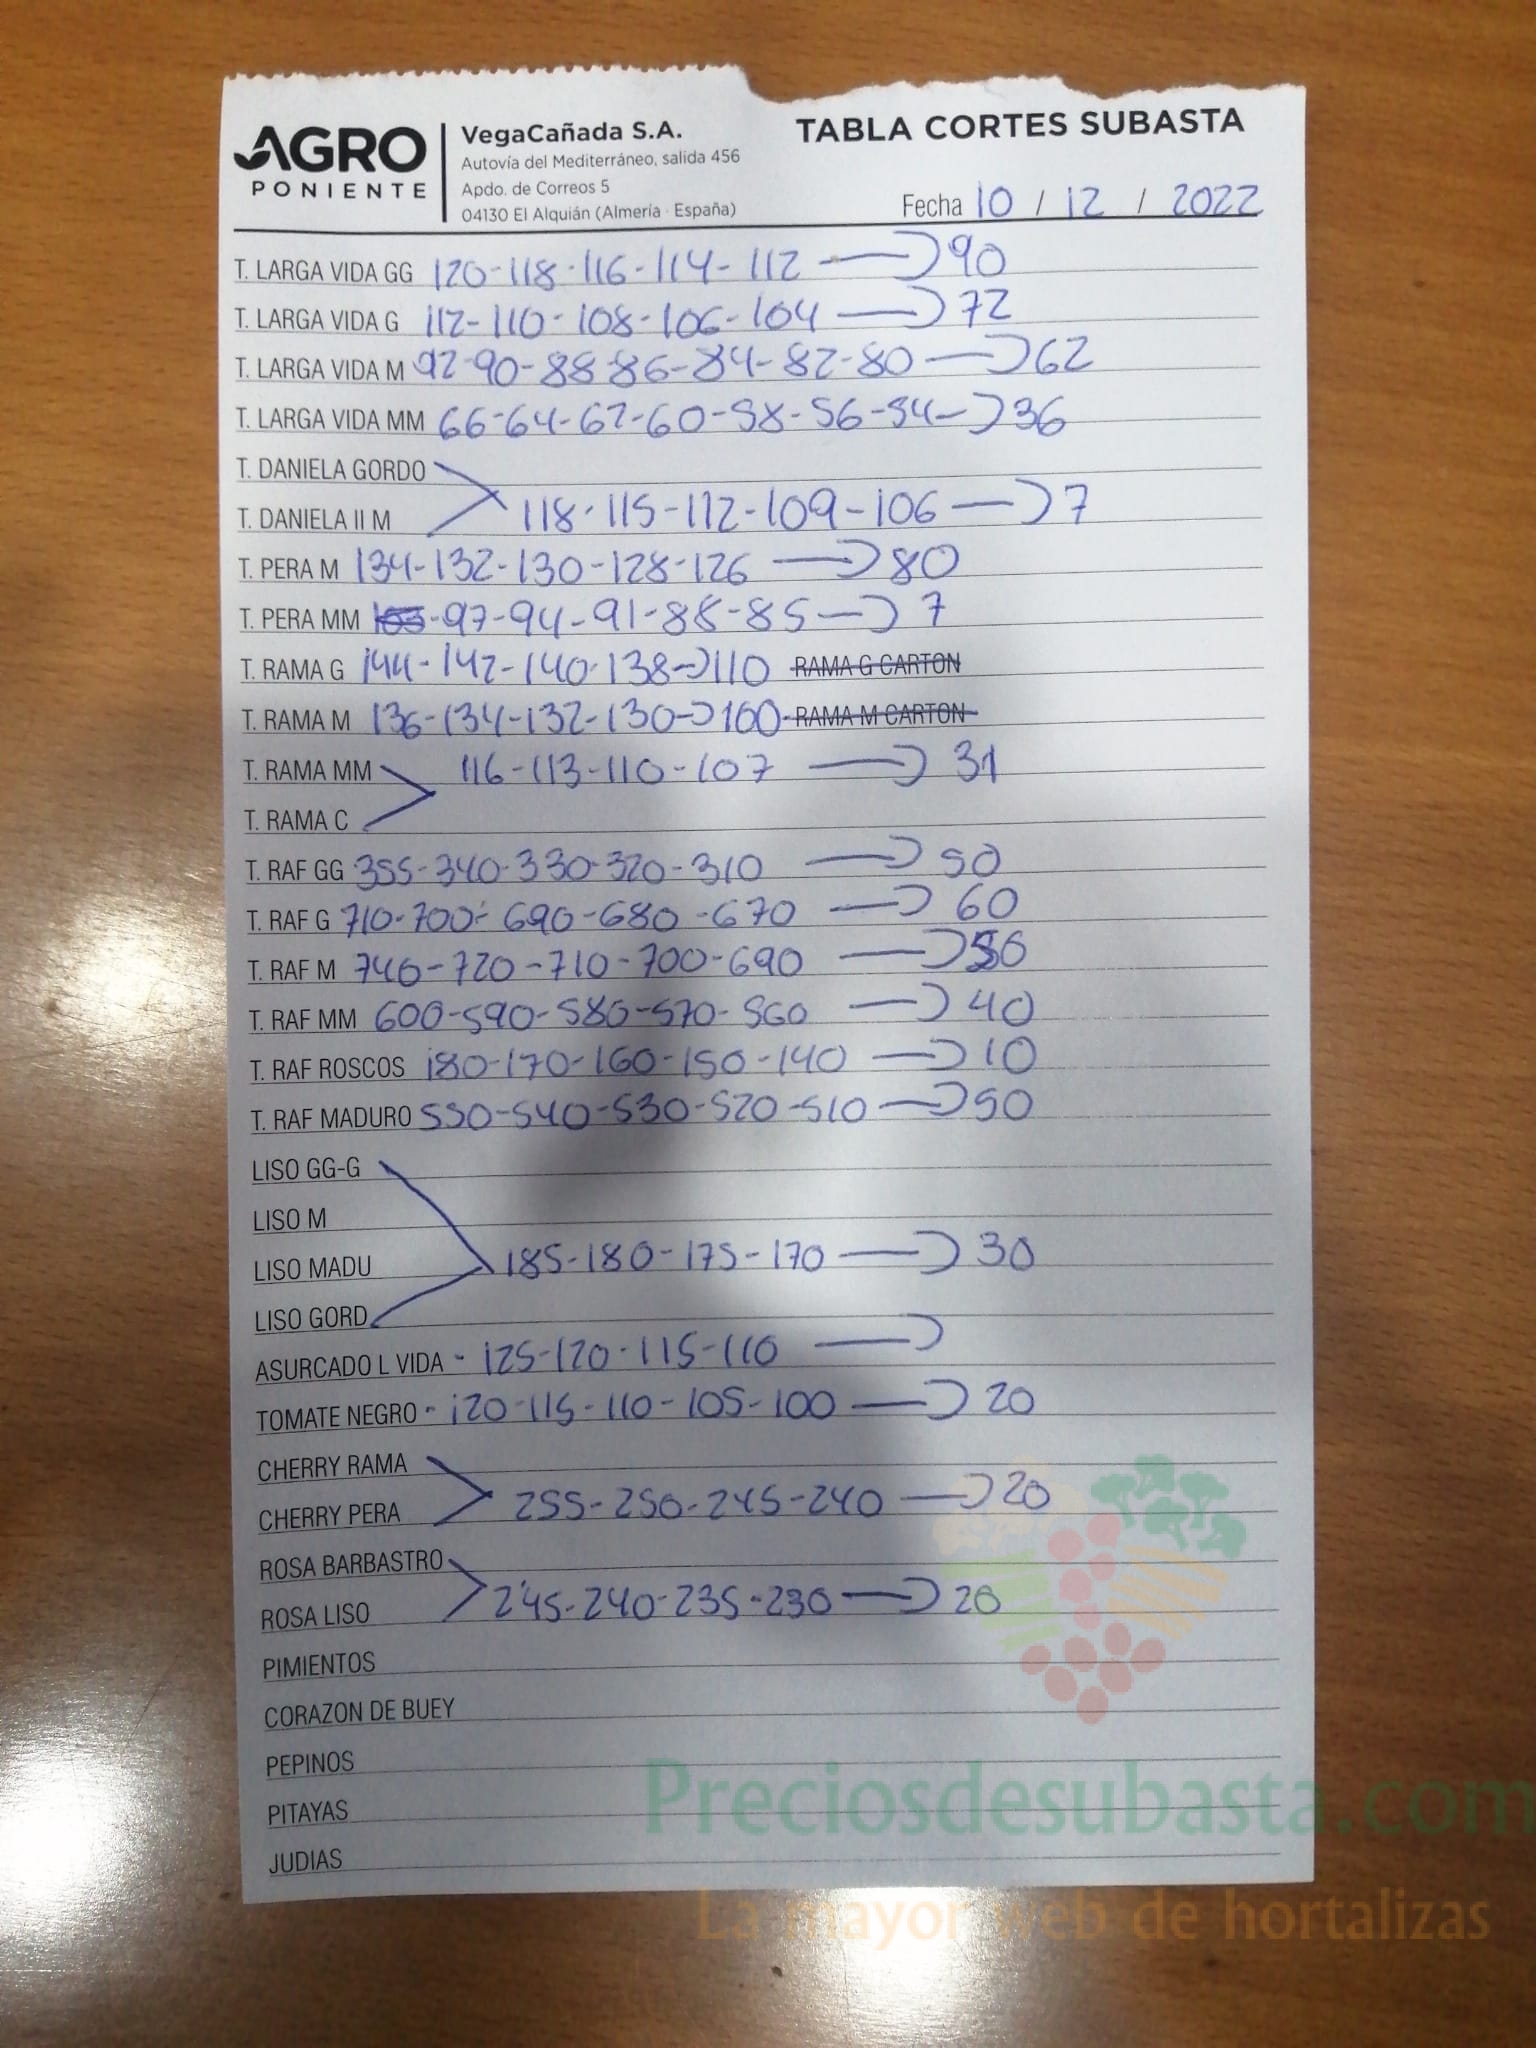 AGRO
PONIENTE
VegaCañada S.A.
Autovía del Mediterráneo, salida 456
Apdo. de Correos 5
04130 El Alquián (Almería · España)
TABLA CORTES SUBASTA
Fecha 10 / 12 / 2022
T. LARGA VIDA GG 120-118-116-114-112 → 90
T. LARGA VIDA G 112-110-108-106-104 → 72
T. LARGA VIDA M 92-90-88-86-84-82-80 → 62
T. LARGA VIDA MM 66-64-62-60-58-56-54 → 36
T. DANIELA GORDO
T. DANIELA II M 118-115-112-109-106 → 7
T. PERA M 134-132-130-128-126 → 80
T. PERA MM 103-97-94-91-88-85 → 7
T. RAMA G 144-142-140-138 → 110 RAMA G CARTON
T. RAMA M 136-134-132-130 → 100 RAMA M CARTON
T. RAMA MM 116-113-110-107 → 31
T. RAMA C
T. RAF GG 355-340-330-320-310 → 50
T. RAF G 710-700-690-680-670 → 60
T. RAF M 740-720-710-700-690 → 50
T. RAF MM 600-590-580-570-560 → 40
T. RAF ROSCOS 180-170-160-150-140 → 10
T. RAF MADURO 550-540-530-520-510 → 50
LISO GG-G
LISO M
LISO MADU 185-180-175-170 → 30
LISO GORD
ASURCADO L VIDA - 125-120-115-110 →
TOMATE NEGRO - 120-115-110-105-100 → 20
CHERRY RAMA
CHERRY PERA 255-250-245-240 → 20
ROSA BARBASTRO
ROSA LISO 245-240-235-230 → 20
PIMIENTOS
CORAZON DE BUEY
PEPINOS
PITAYAS
JUDIAS
Preciosdesubasta.com
La mayor web de hortalizas